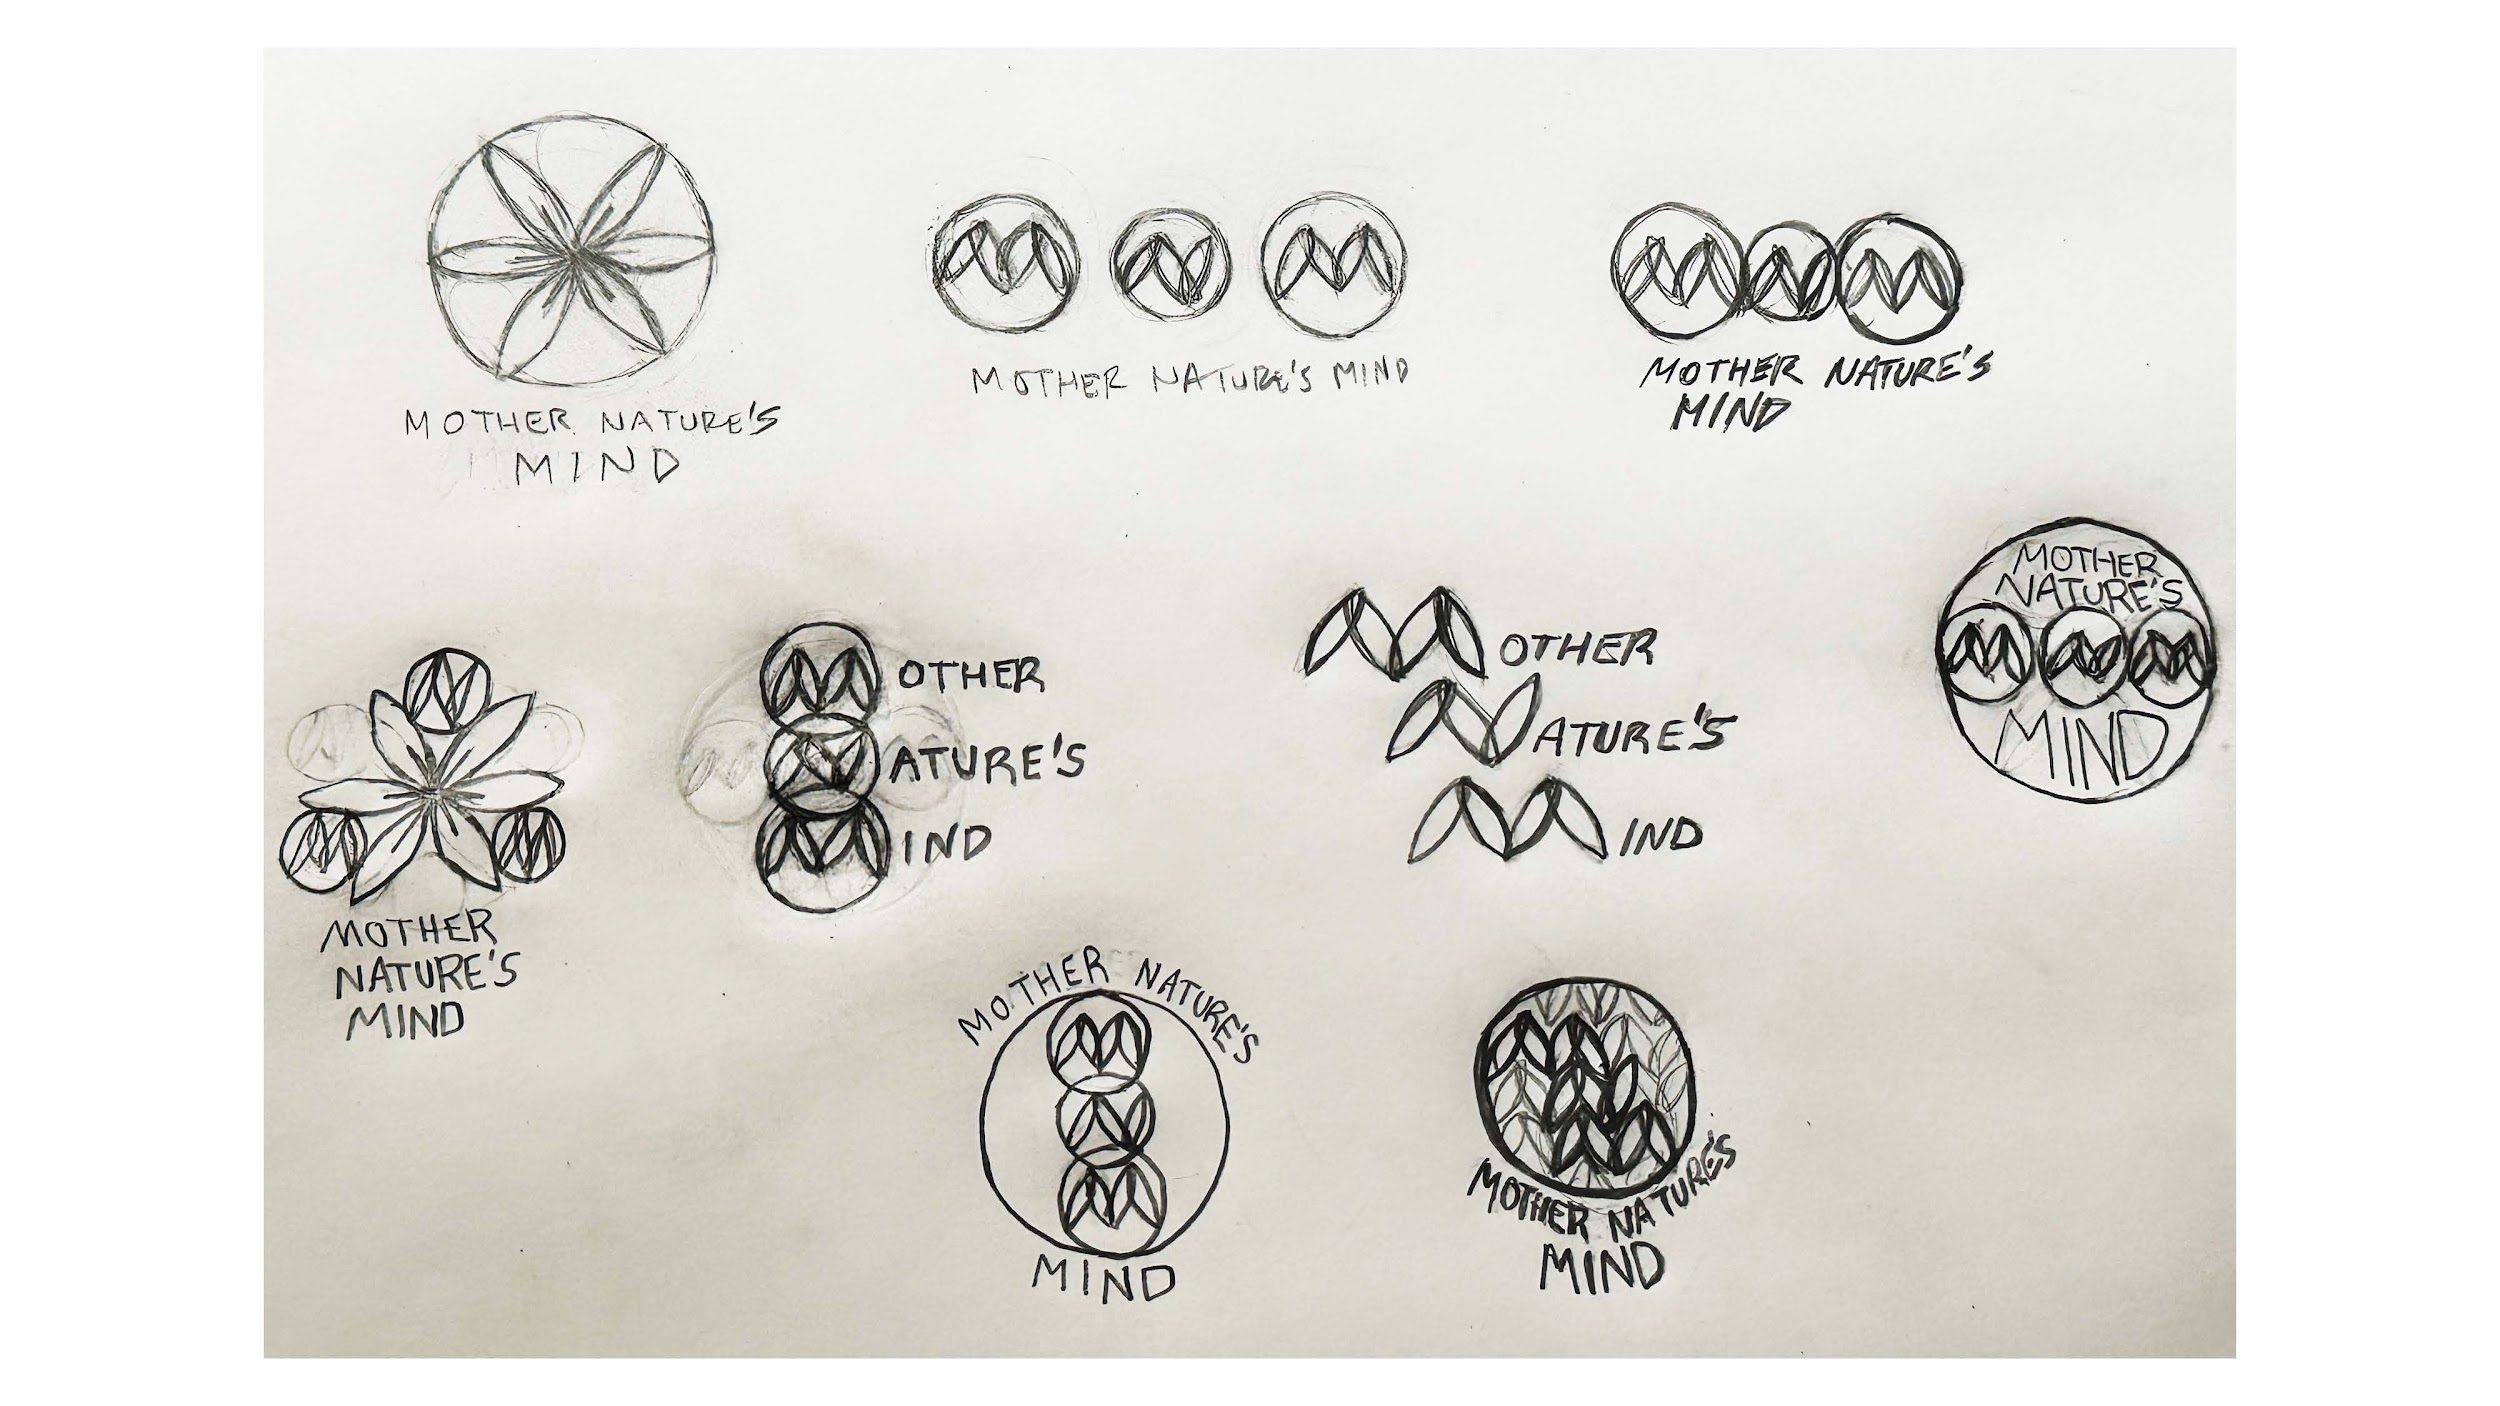 MOTHER NATURE'S
MIND
M N M
MOTHER NATURE'S MIND
M N M
MOTHER NATURE'S
MIND
MOTHER
NATURE'S
M N M
MIND
N
M M
MOTHER
NATURE'S
MIND
MOTHER
NATURE'S
MIND
MOTHER
NATURE'S
MIND
MOTHER NATURE'S
M
N
M
MIND
M
N
M
MOTHER NATURE'S
MIND